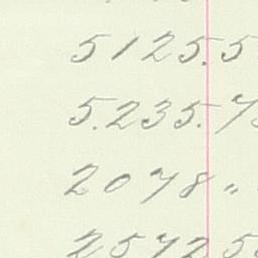 5125.5
5.235.7
2078 "
2572 5